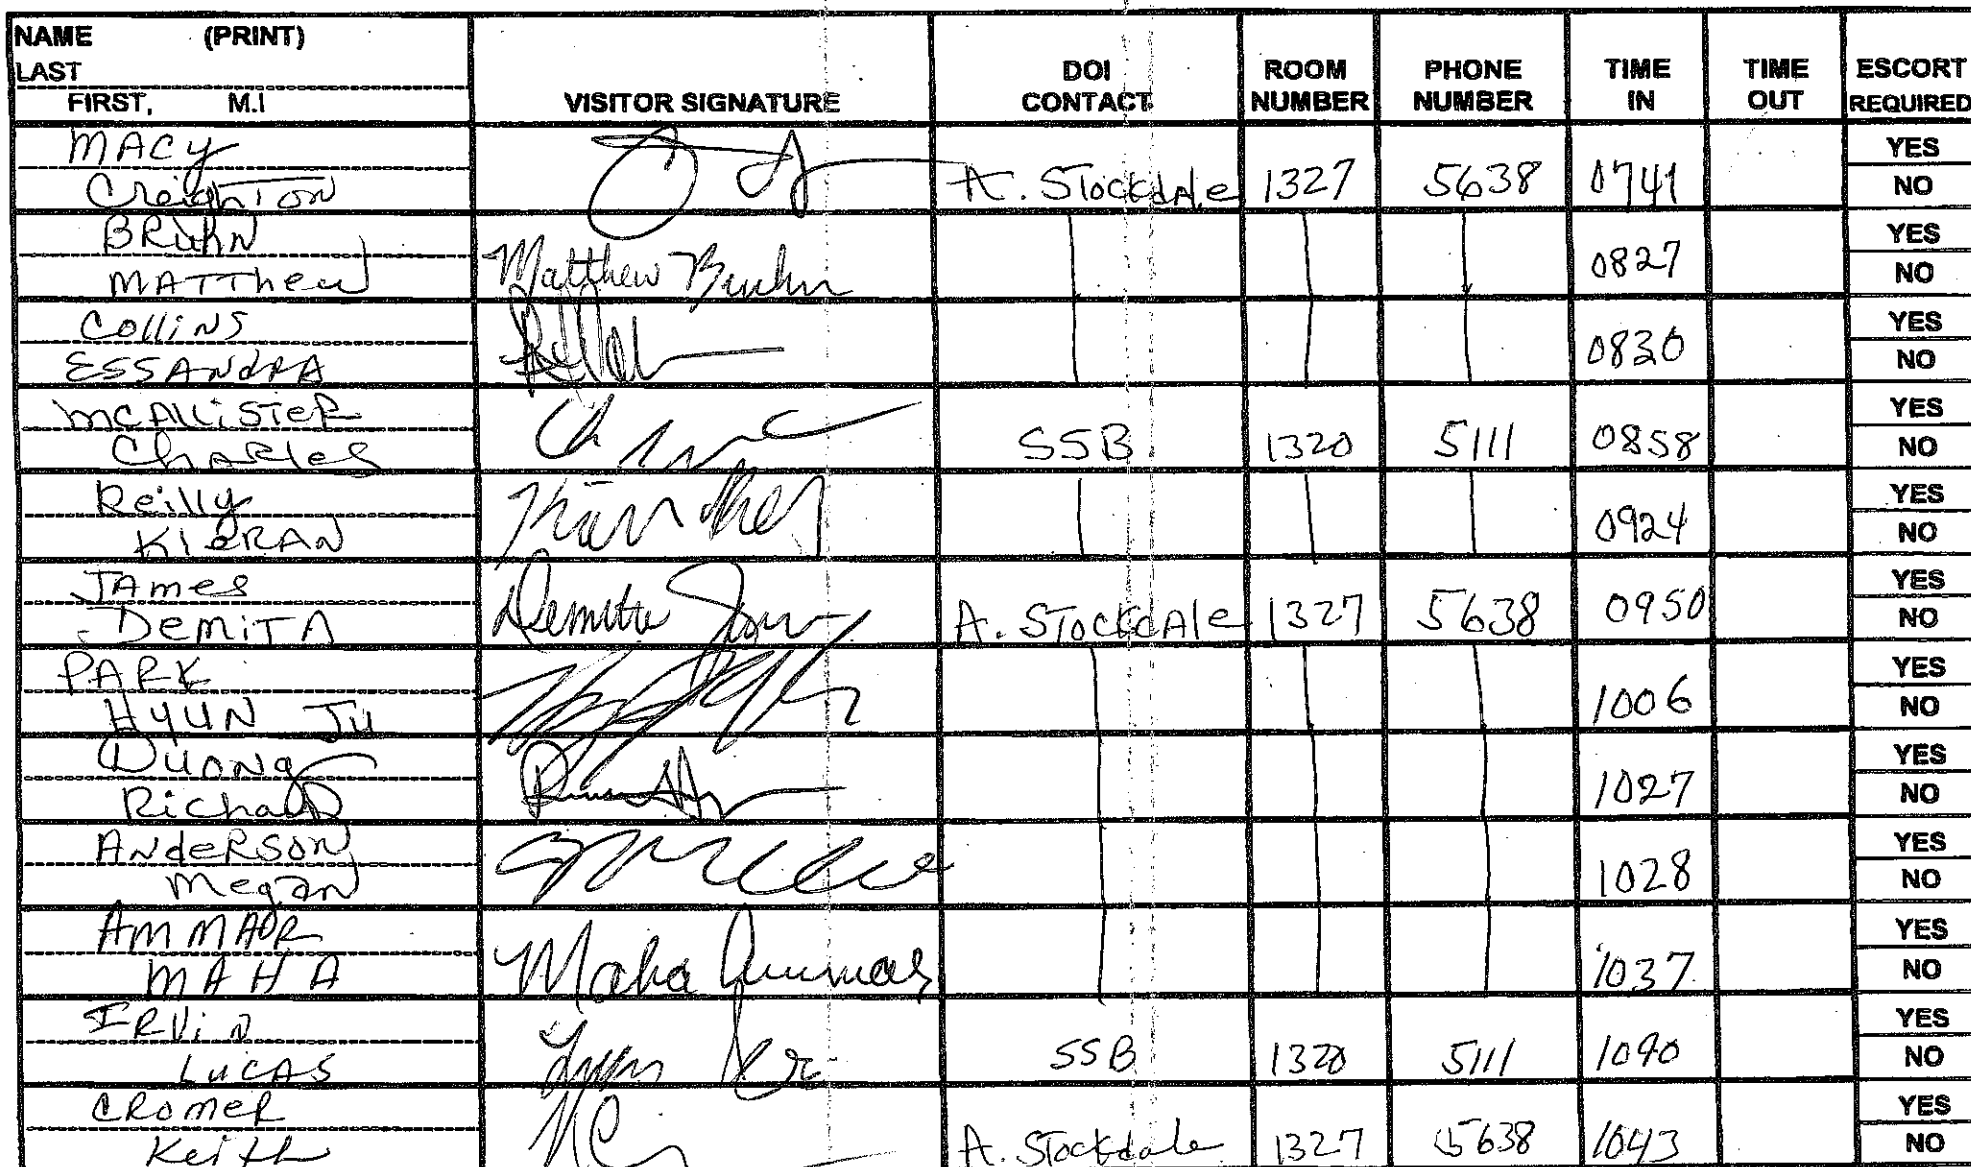 NAME (PRINT)
LAST
FIRST, M.I
VISITOR SIGNATURE
DOI CONTACT
ROOM NUMBER
PHONE NUMBER
TIME IN
TIME OUT
ESCORT REQUIRED
MACY YES
Creighton A. Stockdale 1327 5638 0741 NO
BRUHN YES
MATThew Matthew Bruhn 0827 NO
Collins YES
ESSANdRA 0830 NO
MCAlliSTeR YES
ChARles SSB 1320 5111 0858 NO
Reilly YES
KIeRAN 0924 NO
JAmes YES
DemiTA A. STockdAle 1327 5638 0950 NO
PARK YES
HYUN JU 1006 NO
DuONg YES
RichaRD 1027 NO
ANdeRSON YES
Megan 1028 NO
AMMAR YES
MAHA Maha Ammar 1037 NO
IRViN YES
LuCAS SSB 1320 5111 1040 NO
CRomeR YES
Keith A. Stockdale 1327 5638 1043 NO